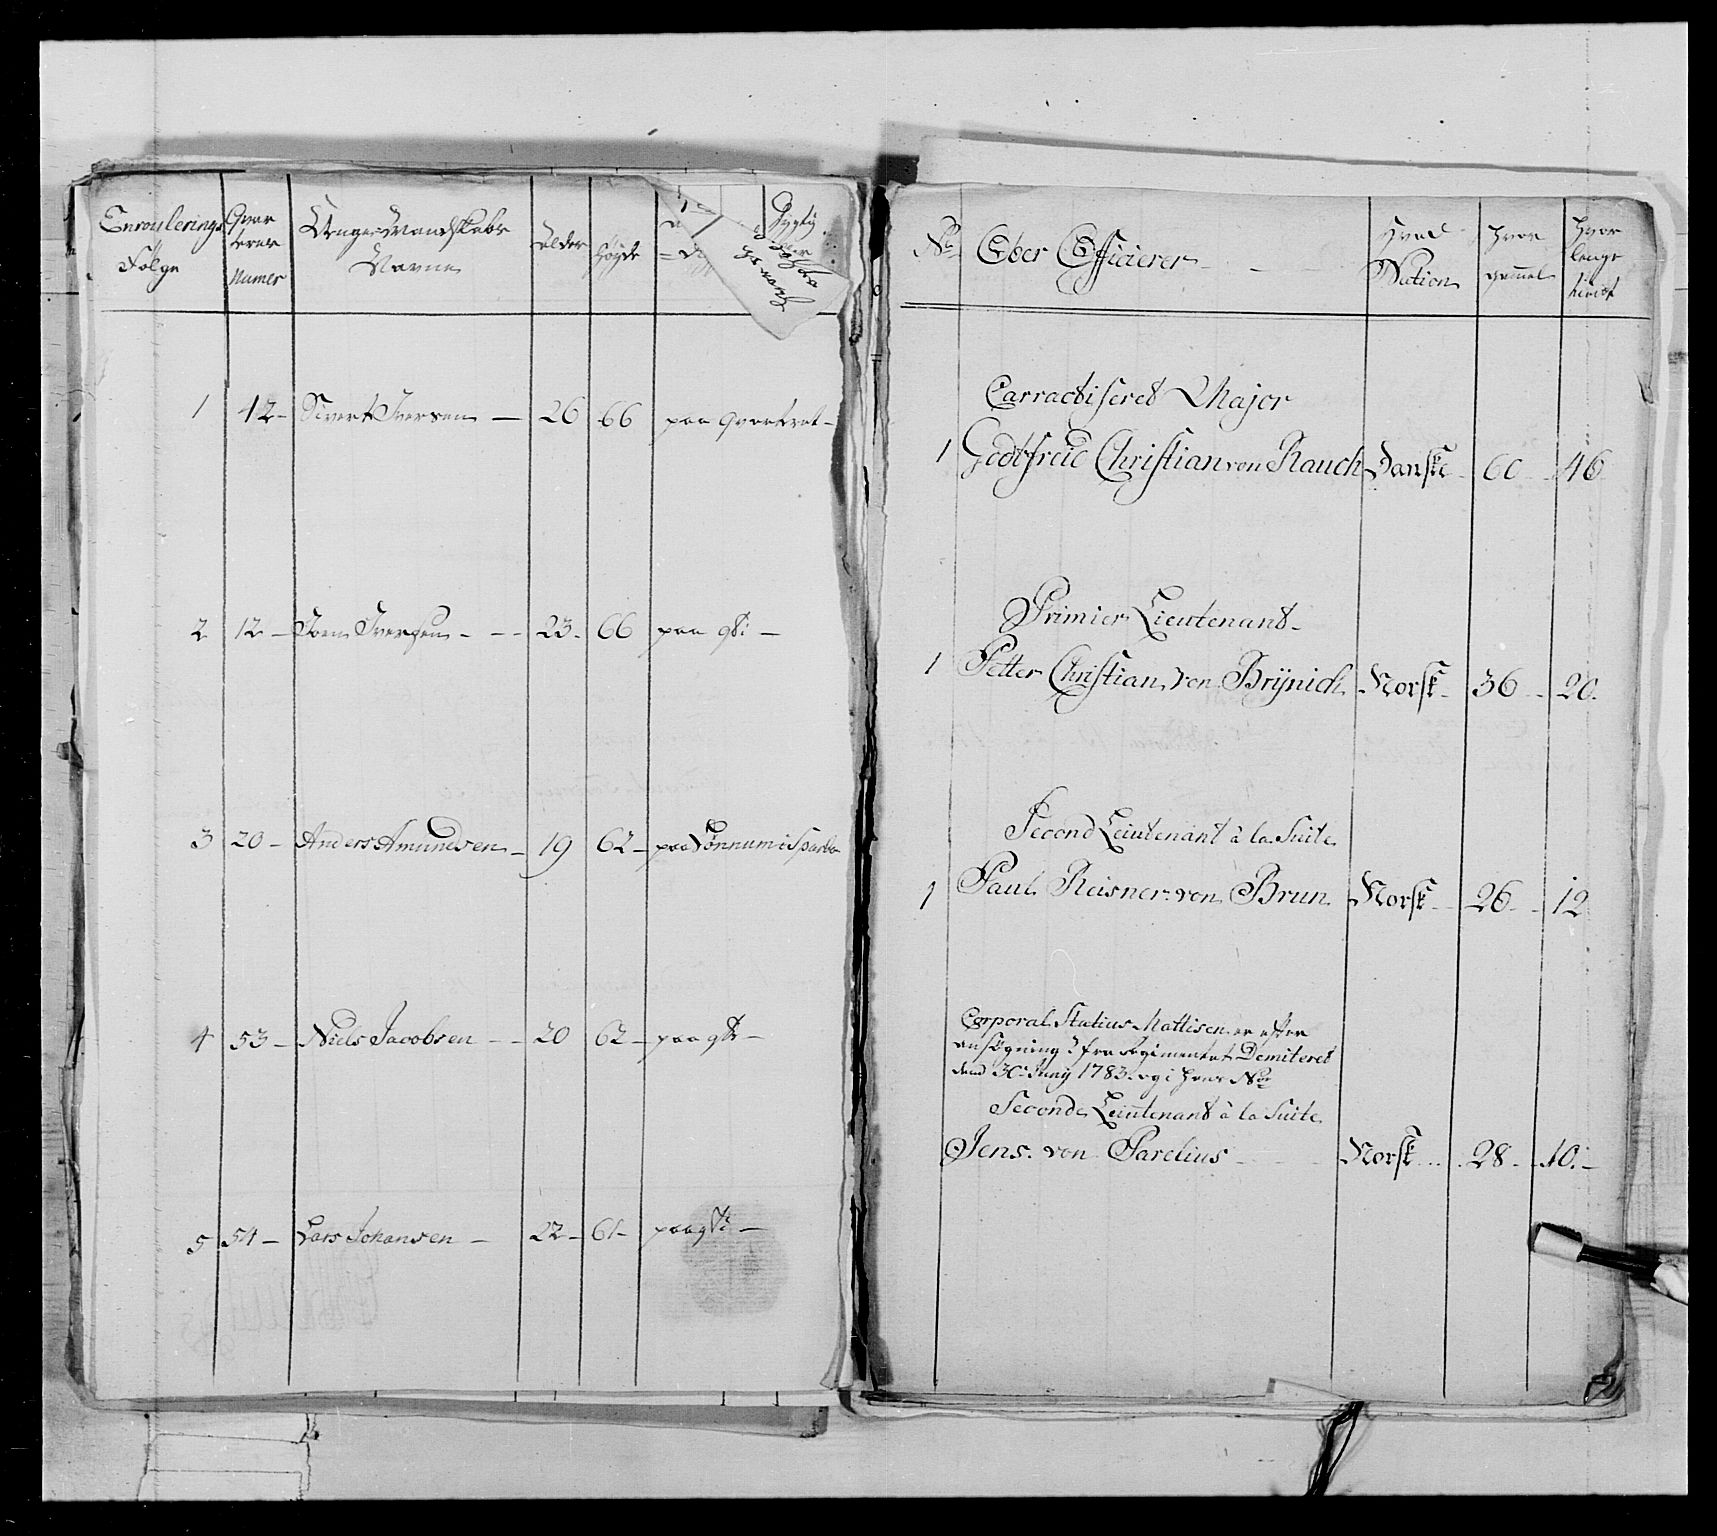 Enroulerings Følge
Qvarterer Numer
Unge Mandskabs Navne
Alder
Høyde
1 42 - Sivert Iversen - 26 66 paa Qvarteret -
2 12 - Joen Iversen - - - 23 - 66 paa qti -
3 20 - Anders Amundsen - 19 62 - paa Lønnum i Sparbo
4 53 - Niels Jacobsen - - 20 62 - paa qti -
5 54 - Lars Johansen - 22 - 61 - paa qti -
No Ober Officierer
Hvad Nation
Hvor gammel
Hvor lenge tient
Carractiseret Major
1 Godtfreid Christian von Rauch Danske - 60 - 46
Primier Lieutenant -
1 Petter Christian von Brÿnich Norsk - 36 - 20 -
Second Leiutenant à la Suite
1 Paul Reisner von Brun Norsk - 26 - 12
Corporal Statius Mattisen er efter
ansøgning fra Regimentet Demiteret
dend 30te Junij 1783 og i hans No
Seconde Leiutenant à la Suite
Jens von Parelius - Norsk - 28 - 10 -